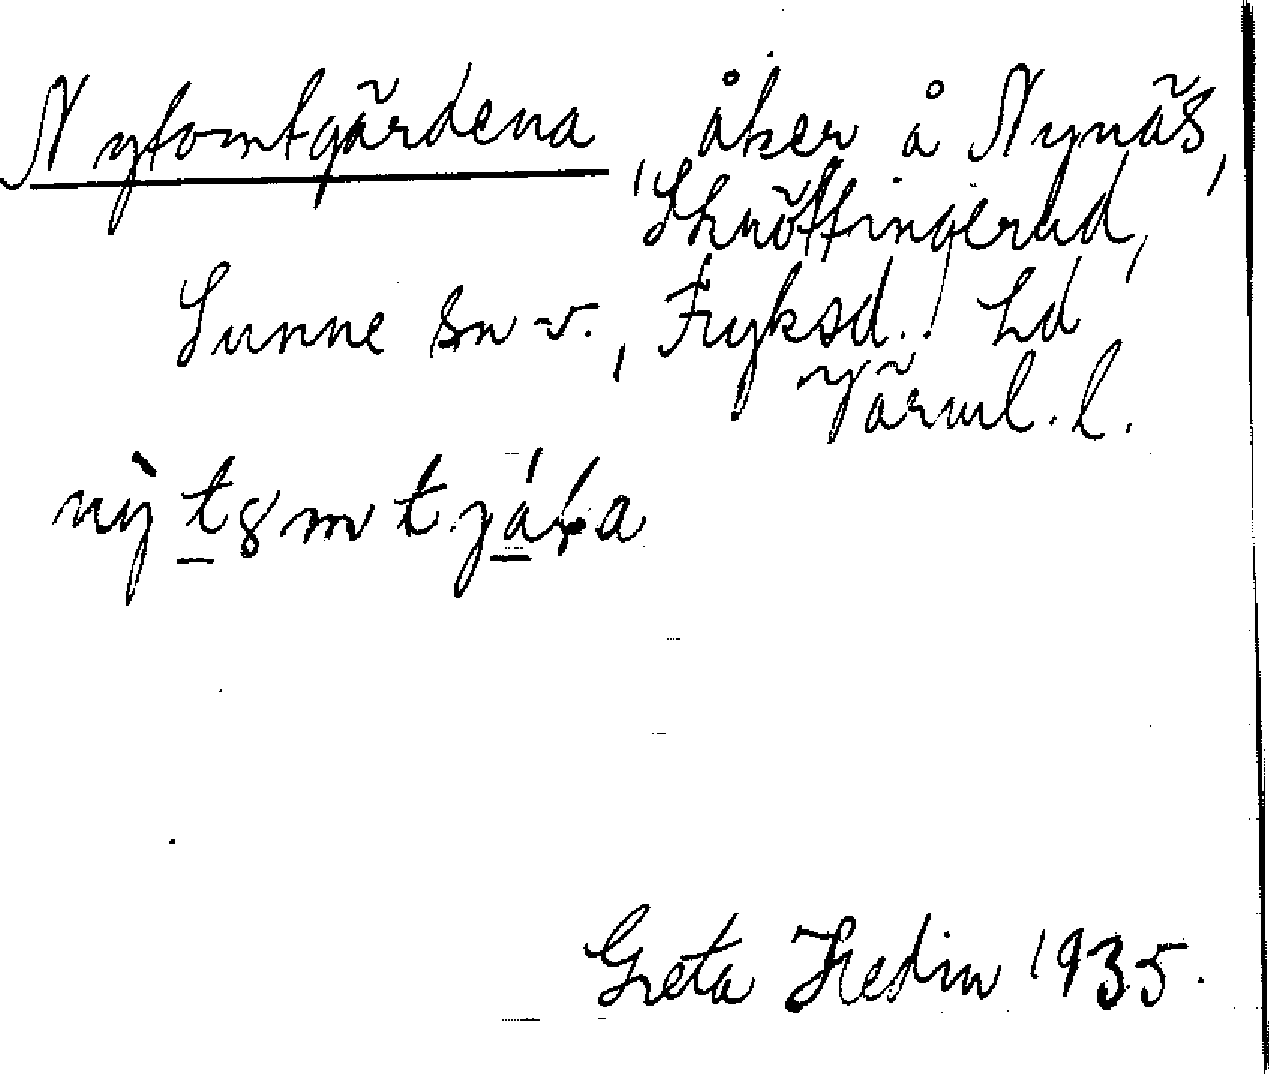 Nytomtgärdena, åker å Nynäs,
Sknöttingerud,
Sunne sn v., Fryksd. hd
Värml. l.
Greta Hedin 1935.